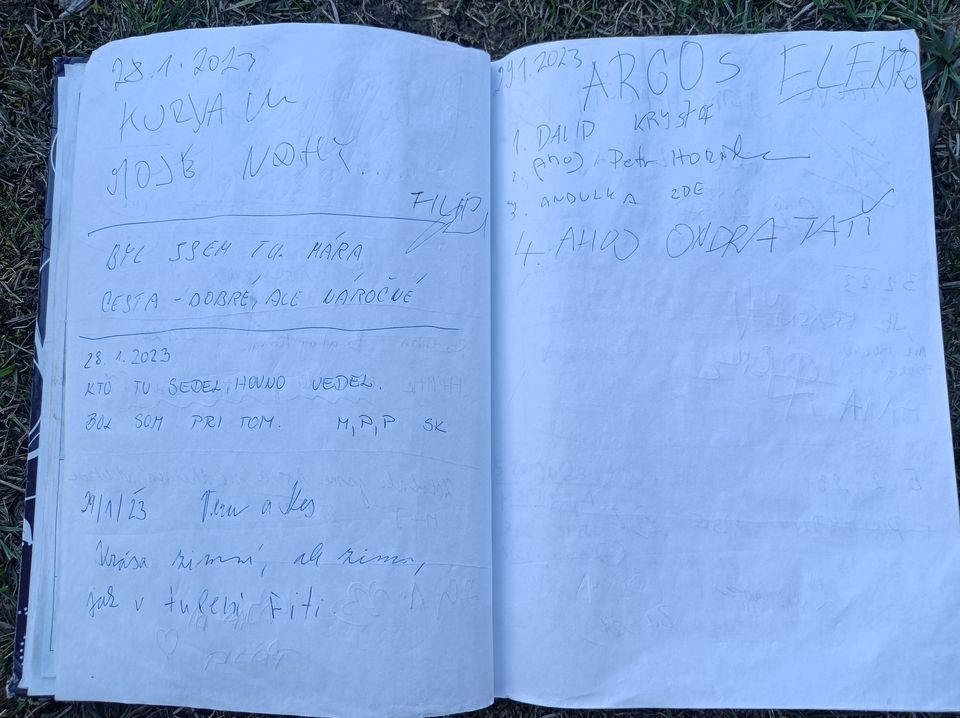 28.1.2023
KURVA
MOJE NOHY...
FILIP
BYL JSEM TU. MÁRA
CESTA - DOBRÉ, ALE NÁROČNÉ
28.1.2023
KTO TU SEDEL, HOVNO VEDEL.
BOL SOM PRI TOM. M,P,P SK
29/1/23 a
Krása zimní, ale zima,
jak v tulení řiti.
29.1.2023 ARGOS ELEKTRO
1. DAVID KRYŠTOF
2. Ahoj Petr
3. ANDULKA ZDE
4. AHOJ ONDRA TATÍ